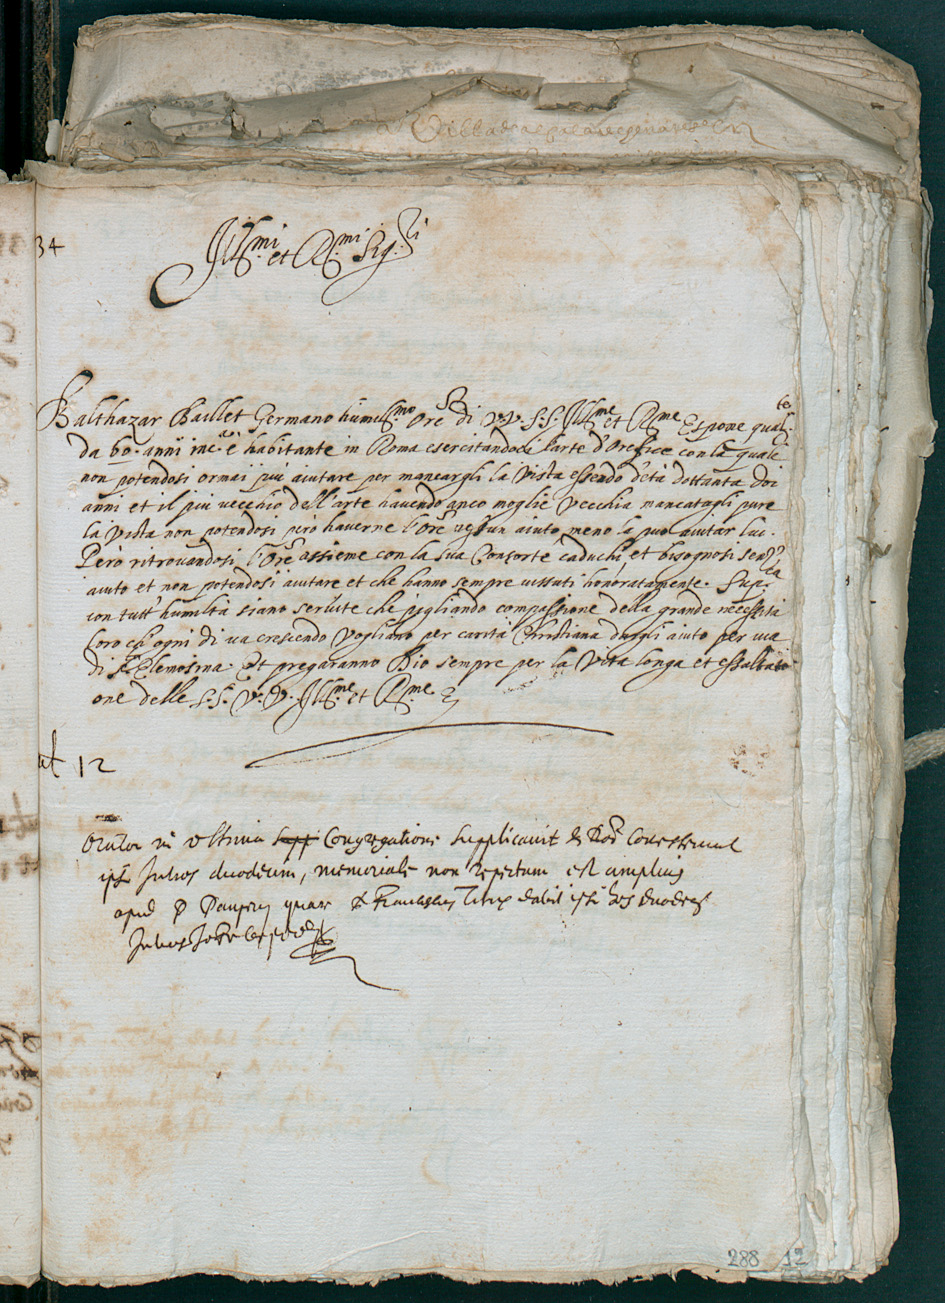 34
Ill.mi et R.mi Sig.ri
Balthazar Baillet Germano humiliss.mo Ore di V.V. S.S. Ill.me et R.me Espone qual.te
da 60. anni in c.a è habitante in Roma esercitandosi l'arte d'Orefice con la quale
non potendosi ormai piu aiutare per mancargli la vista essendo d'età dottanta doi
anni et il piu vecchio dell'arte havendo anco moglie vecchia mancatagli pure
la vista non potendosi però haverne l'Ore nessun aiuto meno la può aiutar lui.
Però ritrovandosi l'Ore assieme con la sua Consorte caduchi, et bisognosi senz'
aiuto et non potendosi aiutare et che hanno sempre vissuti honoratamente. Sup.ca
con tutt'humiltà siano servite che pigliando compassione della grande necessità
loro ch'ogni di va crescendo vogliano per carità Christiana dargli aiuto per via
di Elemosina. Et pregaranno Dio sempre per la vita longa et essaltati
one delle S.S. V.V. Ill.me et R.me
12
Orator in ultima Congregatione supplicavit
ipsi Julios duodecim, memoriale non repertum est amplius
apud quare dabit ipsi hos duodecim
Julios
288 12